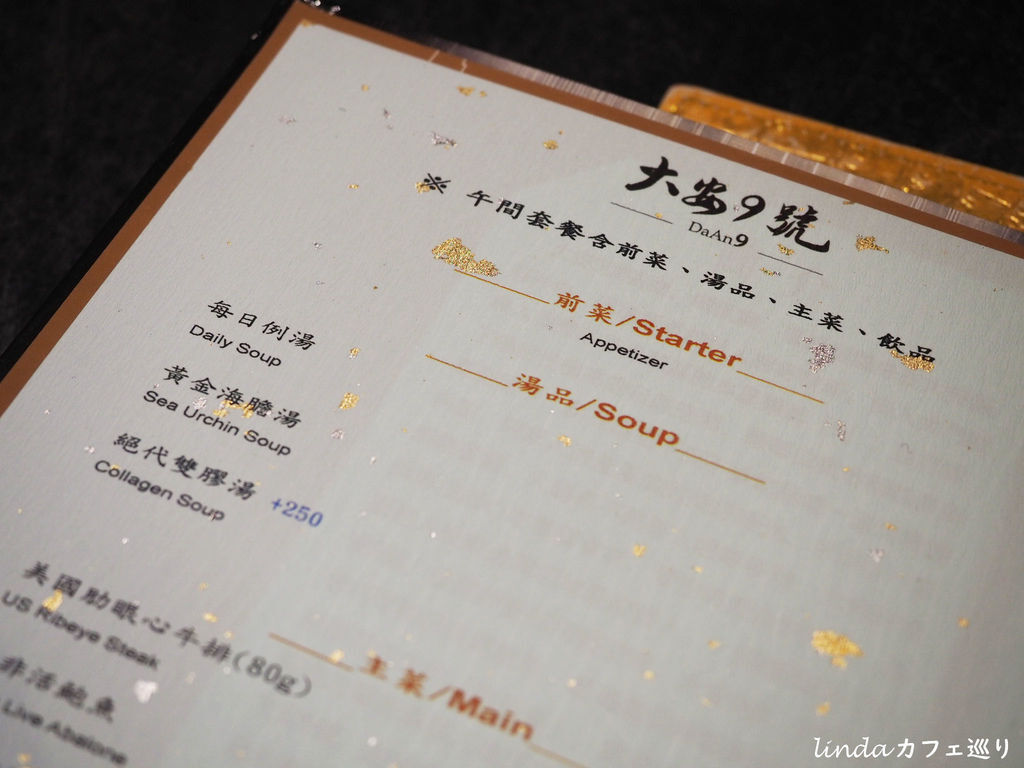 大安9號
DaAn9
※ 午間套餐含前菜、湯品、主菜、飲品
前菜/Starter
Appetizer
湯品/Soup
每日例湯
Daily Soup
黃金海膽湯
Sea Urchin Soup
絕代雙膠湯 +250
Collagen Soup
主菜/Main
美國肋眼心牛排(80g)
US Ribeye Steak
非活鮑魚
Live Abalone
lindaカフェ巡り